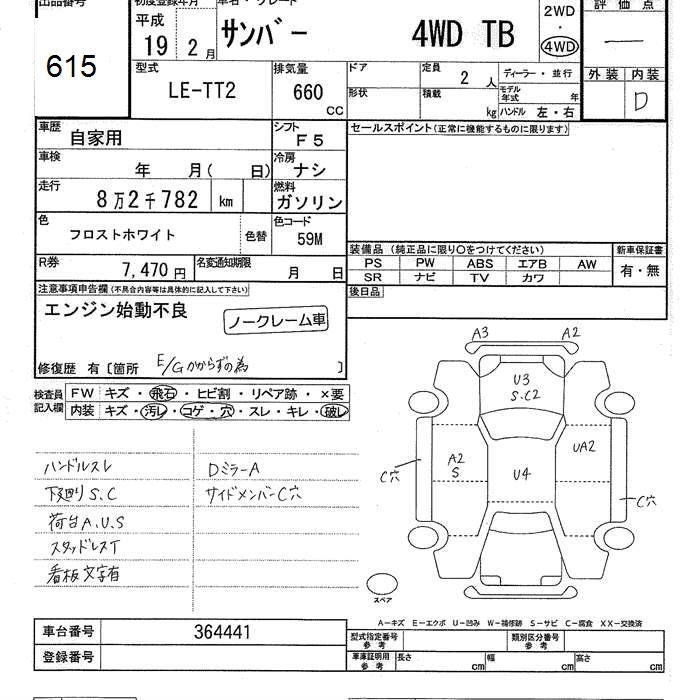 出品番号
615
初度登録年月
平成
19 2月
車名・グレード
サンバー 4WD TB
2WD
・
4WD
評価点
—
外装 内装
D
型式
LE-TT2
排気量
660
CC
ドア
形状
定員
2人
積載
kg
ディーラー・並行
モデル年式 年
ハンドル 左・右
車歴
自家用
シフト
F5
セールスポイント(正常に機能するものに限ります)
車検
年 月( 日)
冷房
ナシ
走行
8万2千782 km
燃料
ガソリン
色
フロストホワイト
色替
色コード
59M
装備品(純正品に限り○をつけてください)
新車保証書
PS PW ABS エアB AW
有・無
SR ナビ TV カワ
R券
7,470円
名変通知期限
月 日
後日品
注意事項申告欄(不具合内容等は具体的に記入して下さい)
エンジン始動不良
ノークレーム車
修復歴 有〔箇所 E/Gかからずの為 〕
検査員
記入欄
FW キズ・飛石・ヒビ割・リペア跡・×要
内装 キズ・汚し・コゲ・穴・スレ・キレ・破し
ハンドルスレ
DミラーA
下廻りS.C
サイドメンバーC穴
荷台A.U.S
スタッドレスT
看板文字有
A3
A2
U3
S.C2
A2
S
UA2
U4
C穴
C穴
スペア
A-キズ E-エクボ U-凹み W-補修跡 S-サビ C-腐食 XX-交換済
車台番号
364441
登録番号
型式指定番号
参考
類別区分番号
参考
車庫証明用
参考
長さ cm
幅 cm
高さ cm